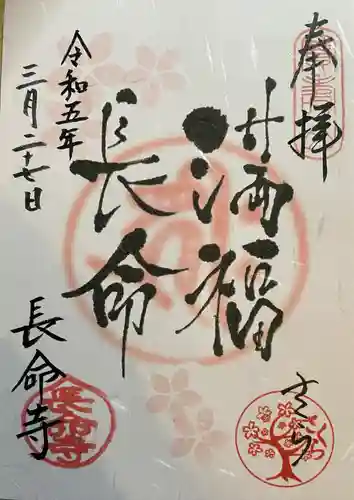 奉拝
満福
長命
令和五年
三月二十七日
長命寺
さくら
さくら